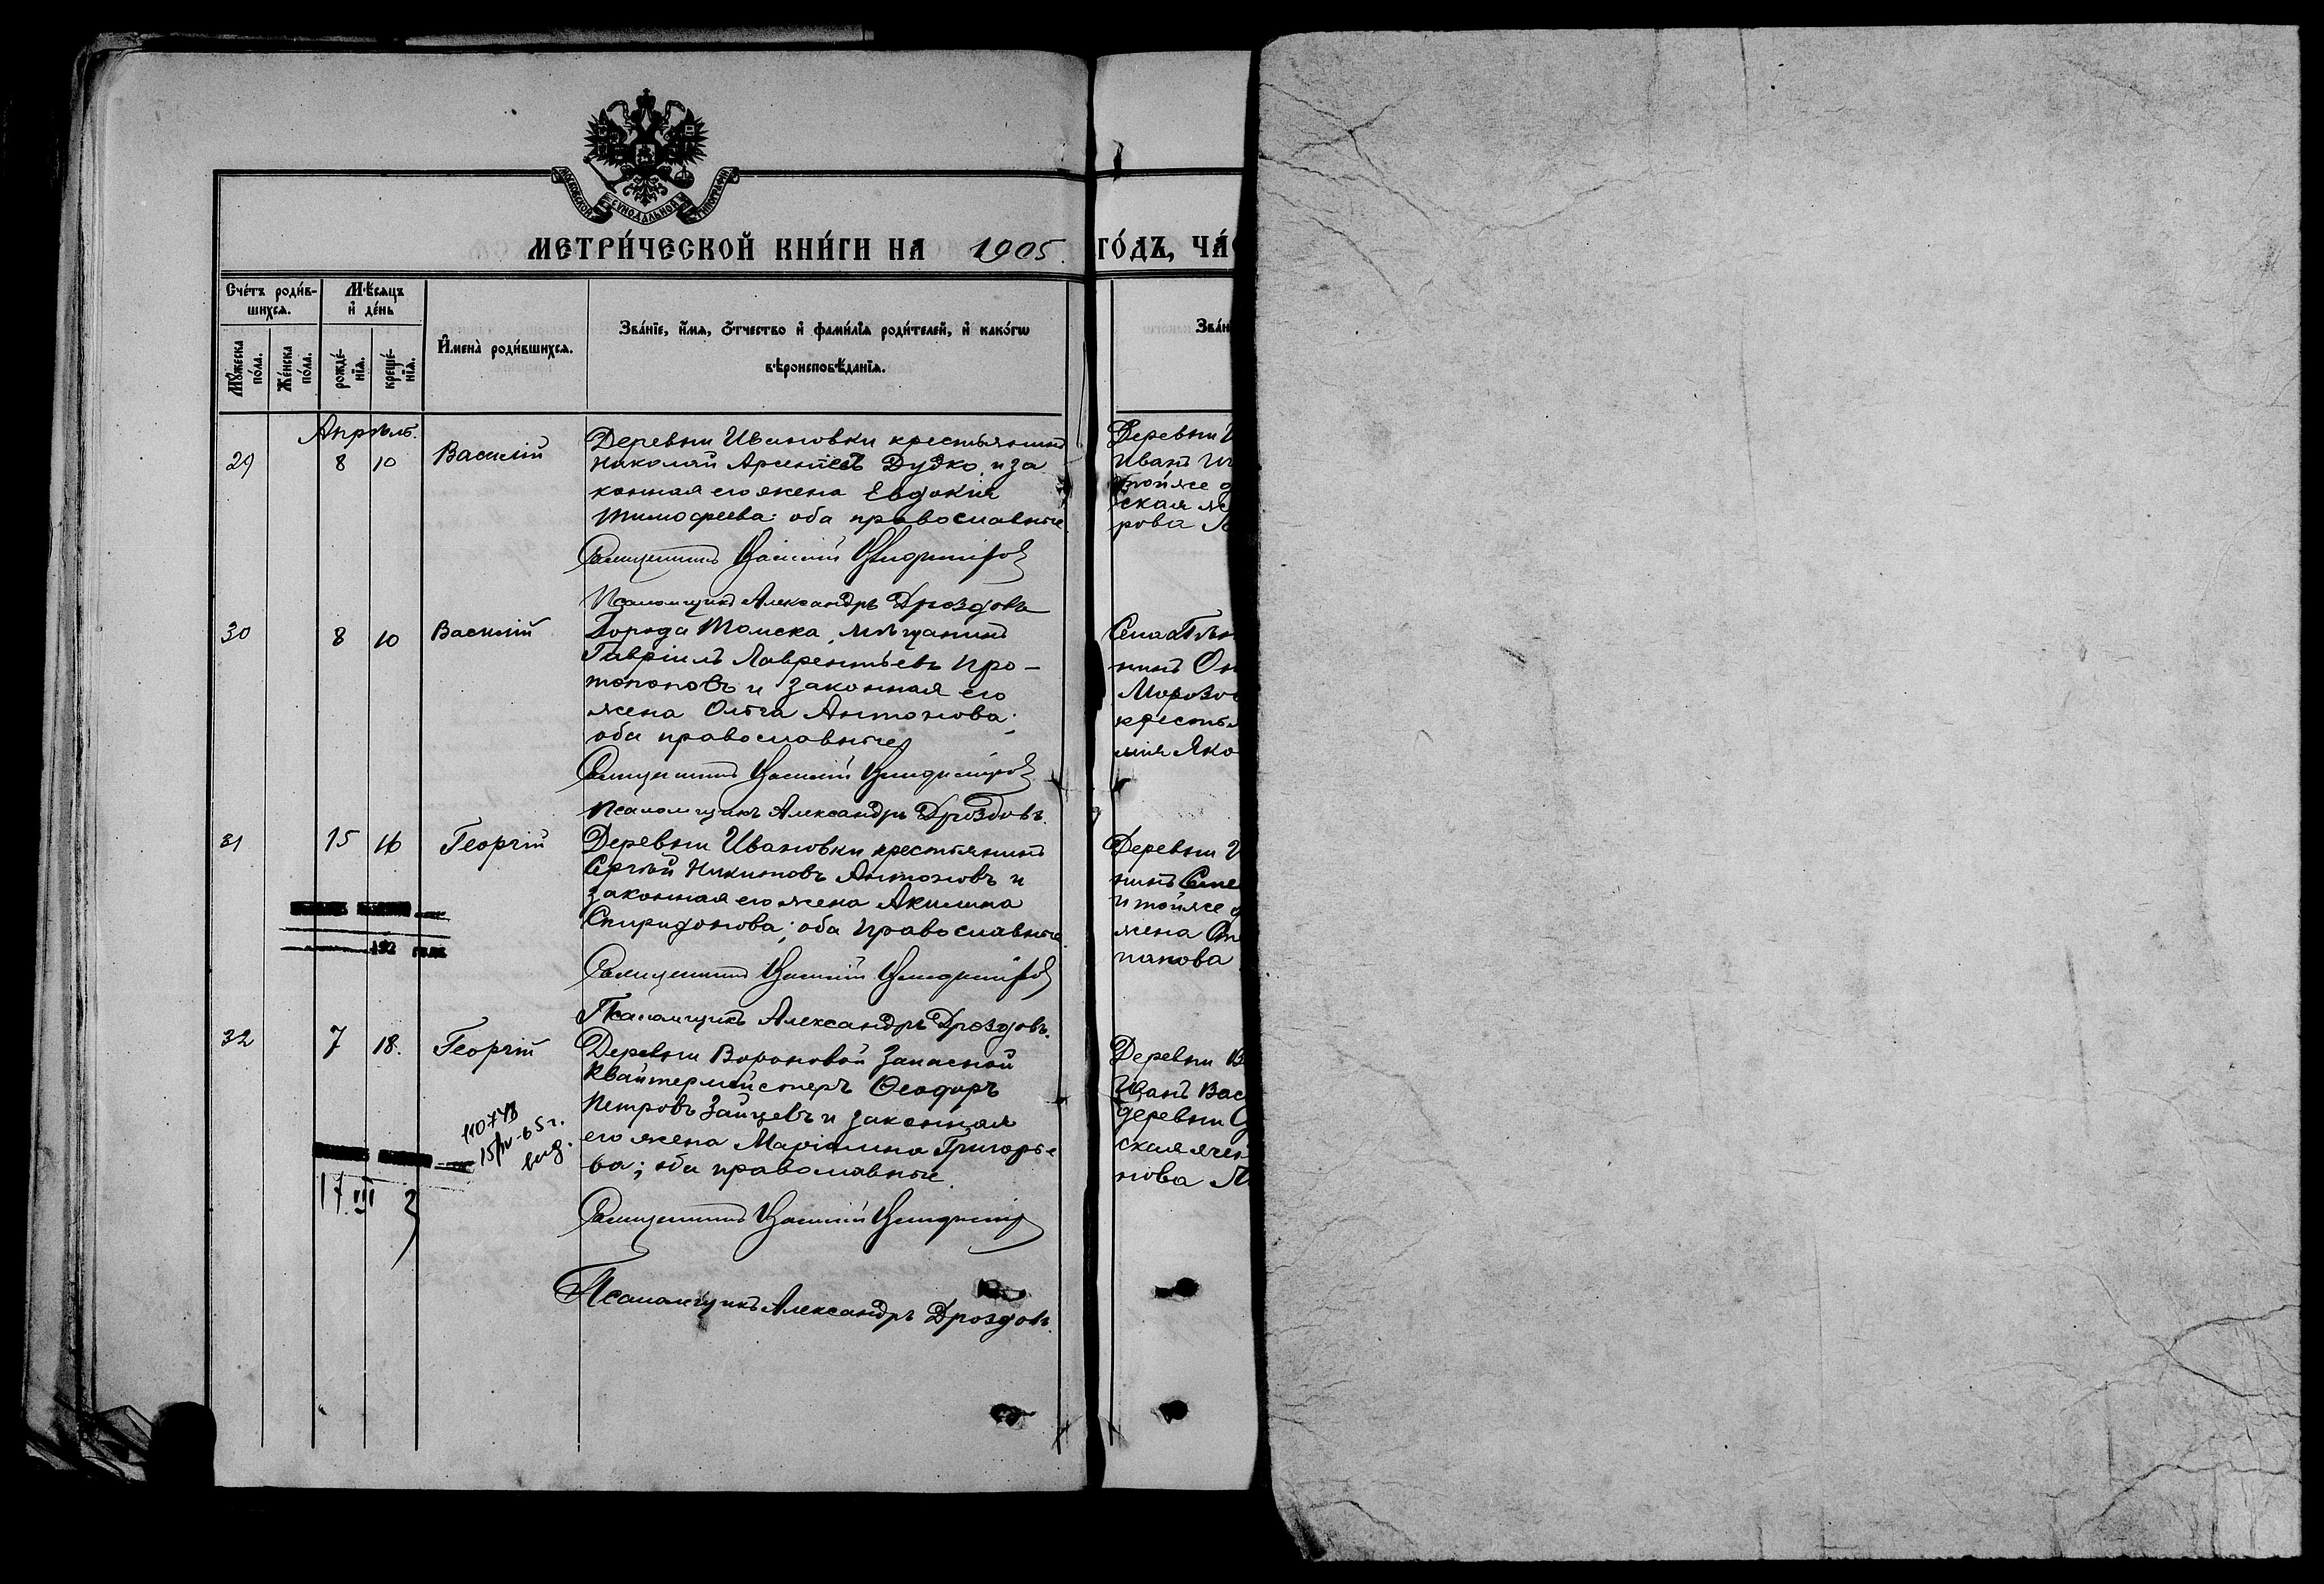 МОСКОВСКОЙ СѴНОДАЛЬНОЙ ТИПОГРАФІИ
МЕТРИ́ЧЕСКОЙ КНИ́ГИ НА 1905
Сче́тъ роди́в-
шихся.
Мѣ́сяцъ
и҆ де́нь
Мꙋ́жеска
по́ла.
Же́нска
по́ла.
рожде́-
нїѧ.
креще́-
нїѧ.
И҆мена̀ роди́вшихсѧ.
Зва́нїе, и҆́мѧ, ѻ҆́тчество и҆ фами́лїѧ роди́телей, и҆ како́гѡ
вѣроисповѣ́данїѧ.
Апрѣль.
29 8 10 Василій
Деревни Ивановки крестьянинъ
Николай Арсеніевъ Дудко и за
конная его жена Евдокія
Тимофеева: оба православные
Священникъ Василій Владиміровъ
Псаломщикъ Александръ Дроздовъ
30 8 10 Василій
Города Томска, мѣщанинъ
Гавріилъ Лаврентьевъ Про-
топоповъ и законная его
жена Ольга Антонова;
оба православные
Священникъ Василій Владиміровъ
Псаломщикъ Александръ Дроздовъ.
31 15 16 Георгій
Деревни Ивановки крестьянинъ
Сергѣй Никитовъ Антоновъ и
законная его жена Акилина
Спиридонова; оба православные
192 года
Священникъ Василій Владиміровъ
Псаломщикъ Александръ Дроздовъ.
32 7 18. Георгій
Деревни Вороновой запасной
Квайтермейстеръ Ѳеодоръ
Петровъ Зайцевъ и законная
его жена Маріамна Григорье
ва; оба православные
110778
15/IV-65 г.
выд.
17 III
Священникъ Василій Владиміръ
Псаломщикъ Александръ Дроздовъ.
ГО́ДЪ, ЧА́С
Зва́н
Деревни И
Иванъ
тойже д
ская
рова
Села
нинъ
Морозов
крестья
мія Яко
Деревни И
нинъ Сте
и тойже д
жена
панова
Деревни В
Иванъ Вас
деревни
ская
нова